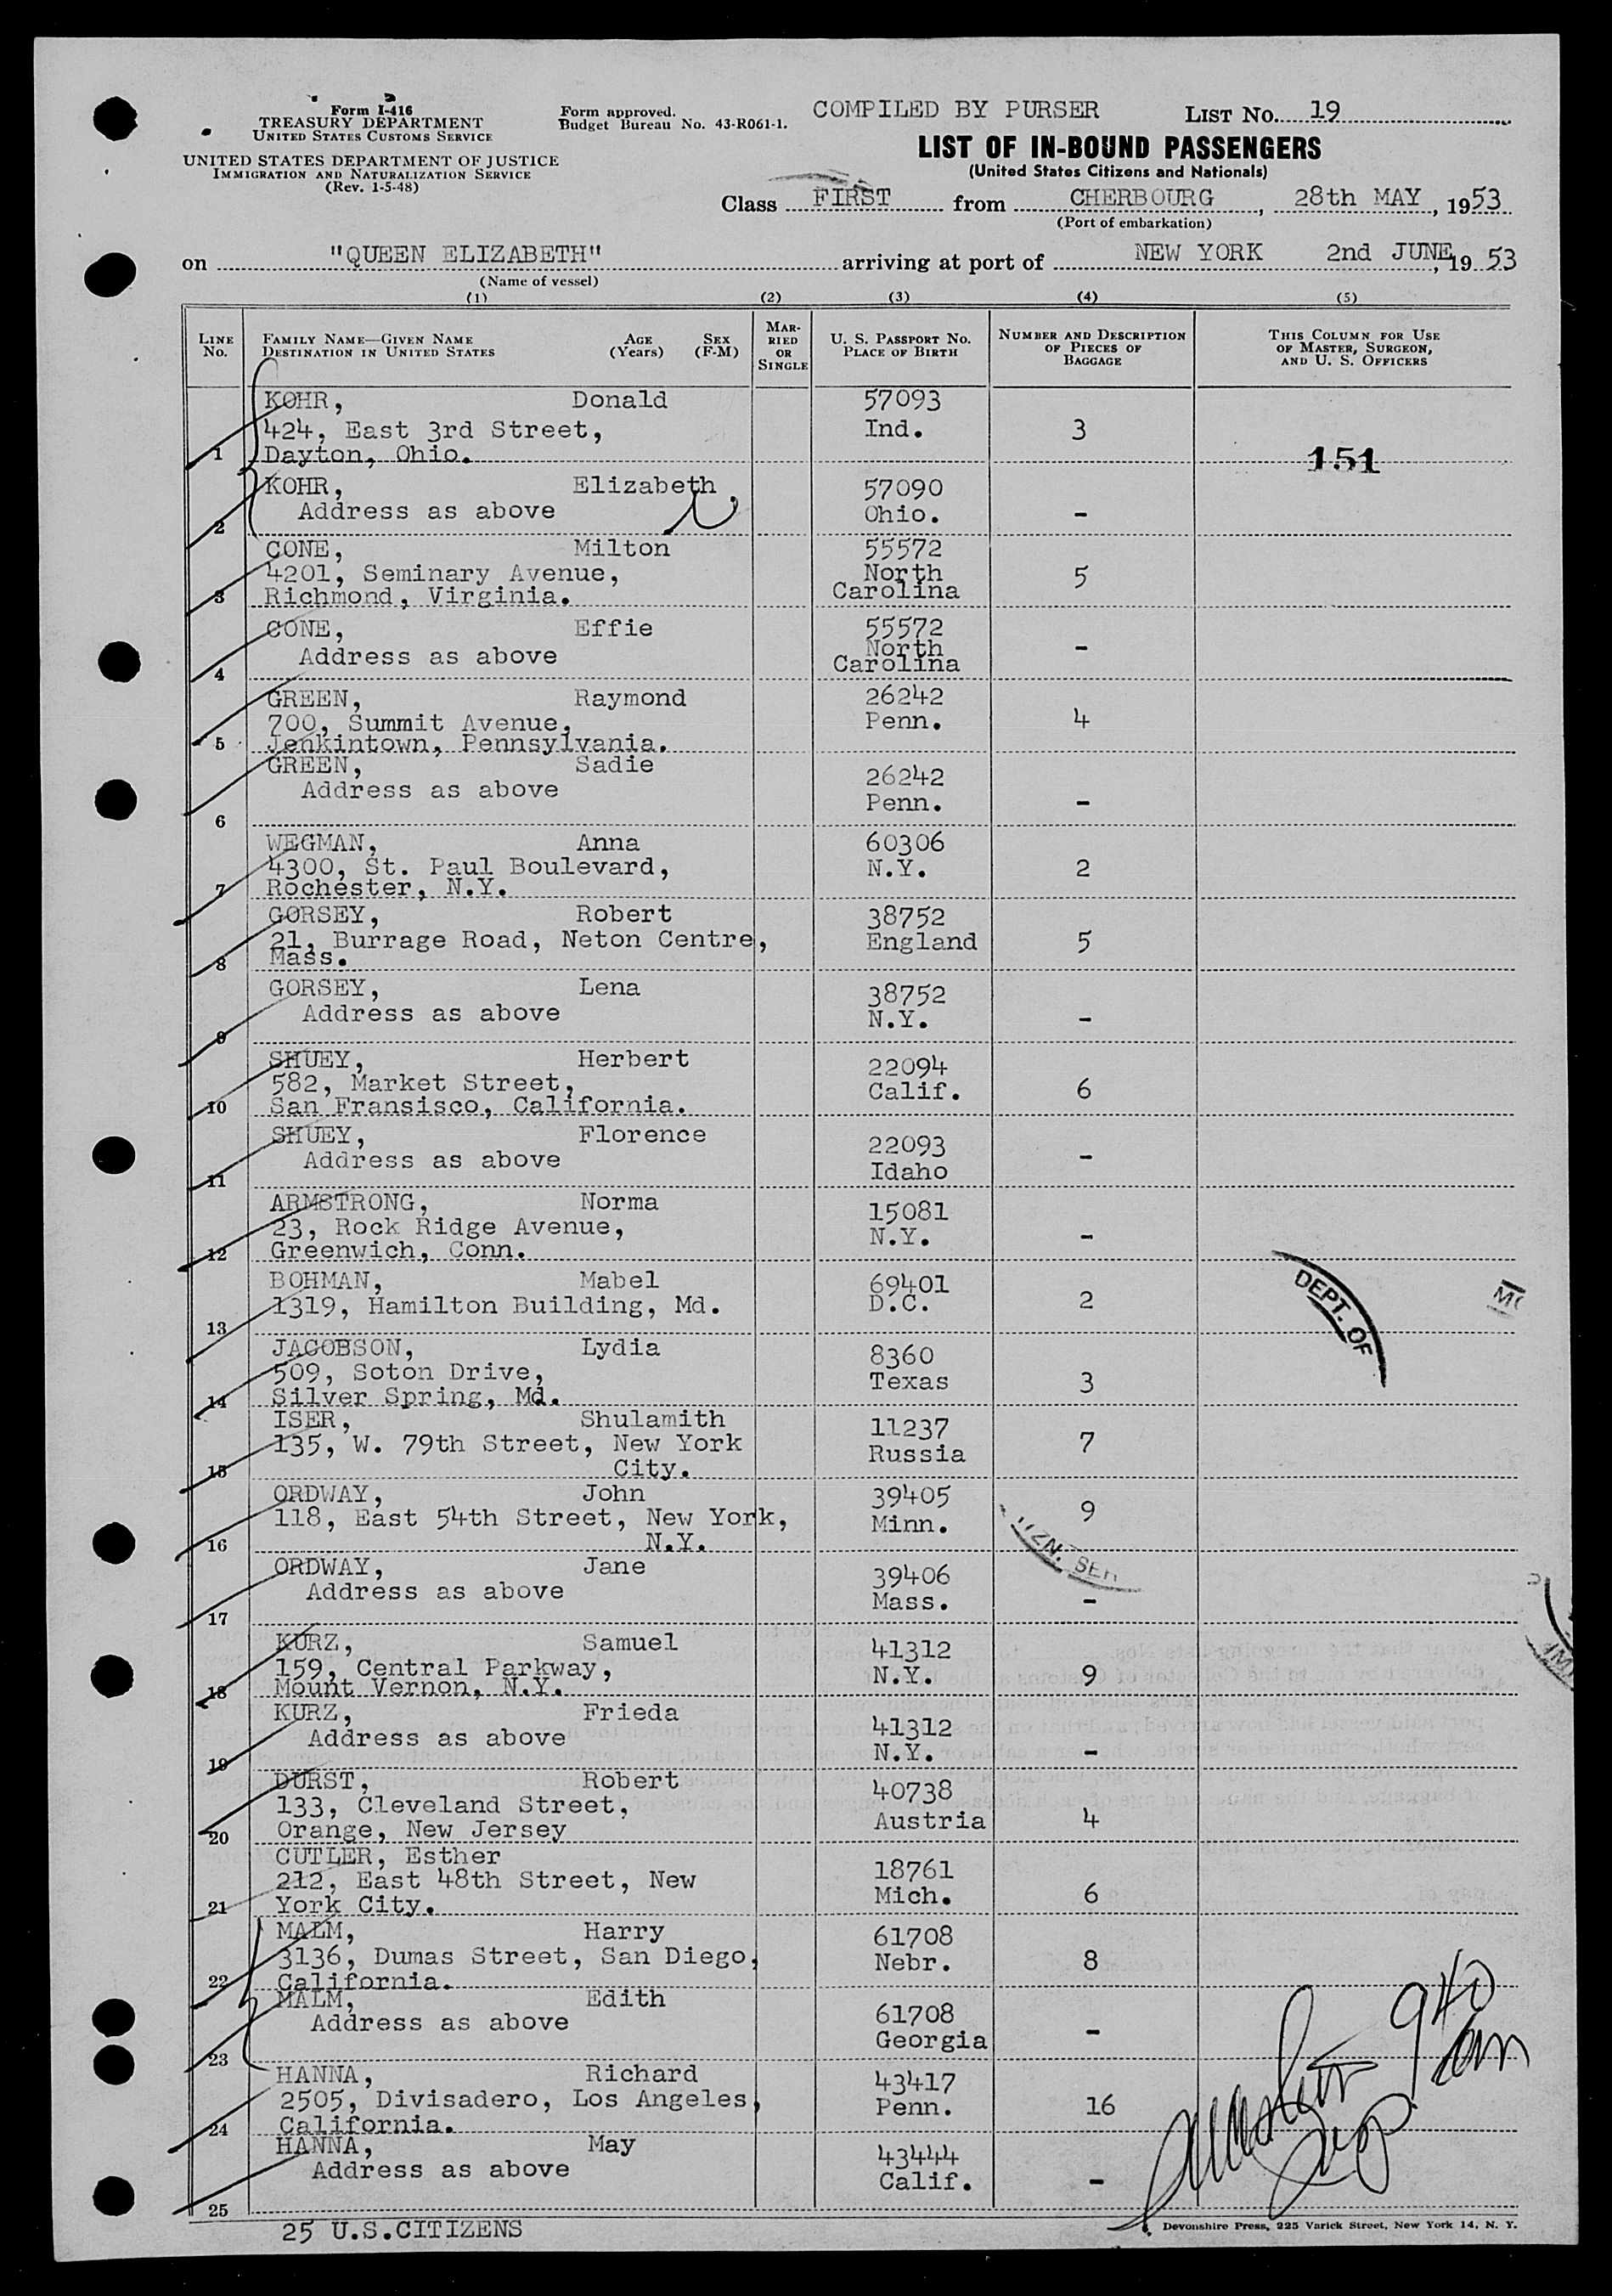 Form I-416
TREASURY DEPARTMENT
UNITED STATES CUSTOMS SERVICE
UNITED STATES DEPARTMENT OF JUSTICE
IMMIGRATION AND NATURALIZATION SERVICE
(Rev. 1-5-48)
Form approved.
Budget Bureau No. 43-R061-1.
COMPILED BY PURSER
LIST NO. 19
LIST OF IN-BOUND PASSENGERS
(United States Citizens and Nationals)
Class FIRST from CHERBOURG, 28th MAY, 1953
(Port of embarkation)
on "QUEEN ELIZABETH" arriving at port of NEW YORK 2nd JUNE, 1953
(Name of vessel)
(1) (2) (3) (4) (5)
LINE NO.
FAMILY NAME—GIVEN NAME
DESTINATION IN UNITED STATES
AGE (Years)
SEX (F-M)
MARRIED OR SINGLE
U. S. PASSPORT NO.
PLACE OF BIRTH
NUMBER AND DESCRIPTION OF PIECES OF BAGGAGE
THIS COLUMN FOR USE OF MASTER, SURGEON, AND U. S. OFFICERS
KOHR, Donald 57093
424, East 3rd Street, Ind. 3
1 Dayton, Ohio. 151
KOHR, Elizabeth 57090
2 Address as above Ohio. -
CONE, Milton 55572
4201, Seminary Avenue, North 5
3 Richmond, Virginia. Carolina
CONE, Effie 55572
Address as above North -
4 Carolina
GREEN, Raymond 26242
700, Summit Avenue, Penn. 4
5 Jenkintown, Pennsylvania.
GREEN, Sadie 26242
Address as above Penn. -
6
WEGMAN, Anna 60306
4300, St. Paul Boulevard, N.Y. 2
7 Rochester, N.Y.
GORSEY, Robert 38752
21, Burrage Road, Neton Centre, England 5
8 Mass.
GORSEY, Lena 38752
Address as above N.Y. -
9
SHUEY, Herbert 22094
582, Market Street, Calif. 6
10 San Fransisco, California.
SHUEY, Florence 22093
Address as above Idaho -
11
ARMSTRONG, Norma 15081
23, Rock Ridge Avenue, N.Y. -
12 Greenwich, Conn.
BOHMAN, Mabel 69401
1319, Hamilton Building, Md. D.C. 2
13
DEPT. OF
JACOBSON, Lydia 8360
509, Soton Drive, Texas 3
14 Silver Spring, Md.
ISER, Shulamith 11237
135, W. 79th Street, New York Russia 7
15 City.
ORDWAY, John 39405
118, East 54th Street, New York, Minn. 9
16 N.Y.
ORDWAY, Jane 39406
Address as above Mass. -
17
KURZ, Samuel 41312
159, Central Parkway, N.Y. 9
18 Mount Vernon, N.Y.
KURZ, Frieda 41312
Address as above N.Y. -
19
DURST, Robert 40738
133, Cleveland Street, Austria 4
20 Orange, New Jersey
CUTLER, Esther 18761
212, East 48th Street, New Mich. 6
21 York City.
MALM, Harry 61708
3136, Dumas Street, San Diego, Nebr. 8
22 California.
MALM, Edith 61708
Address as above Georgia -
23
HANNA, Richard 43417
2505, Divisadero, Los Angeles, Penn. 16
24 California.
HANNA, May 43444
Address as above Calif. -
25
25 U.S.CITIZENS
Devonshire Press, 225 Varick Street, New York 14, N. Y.